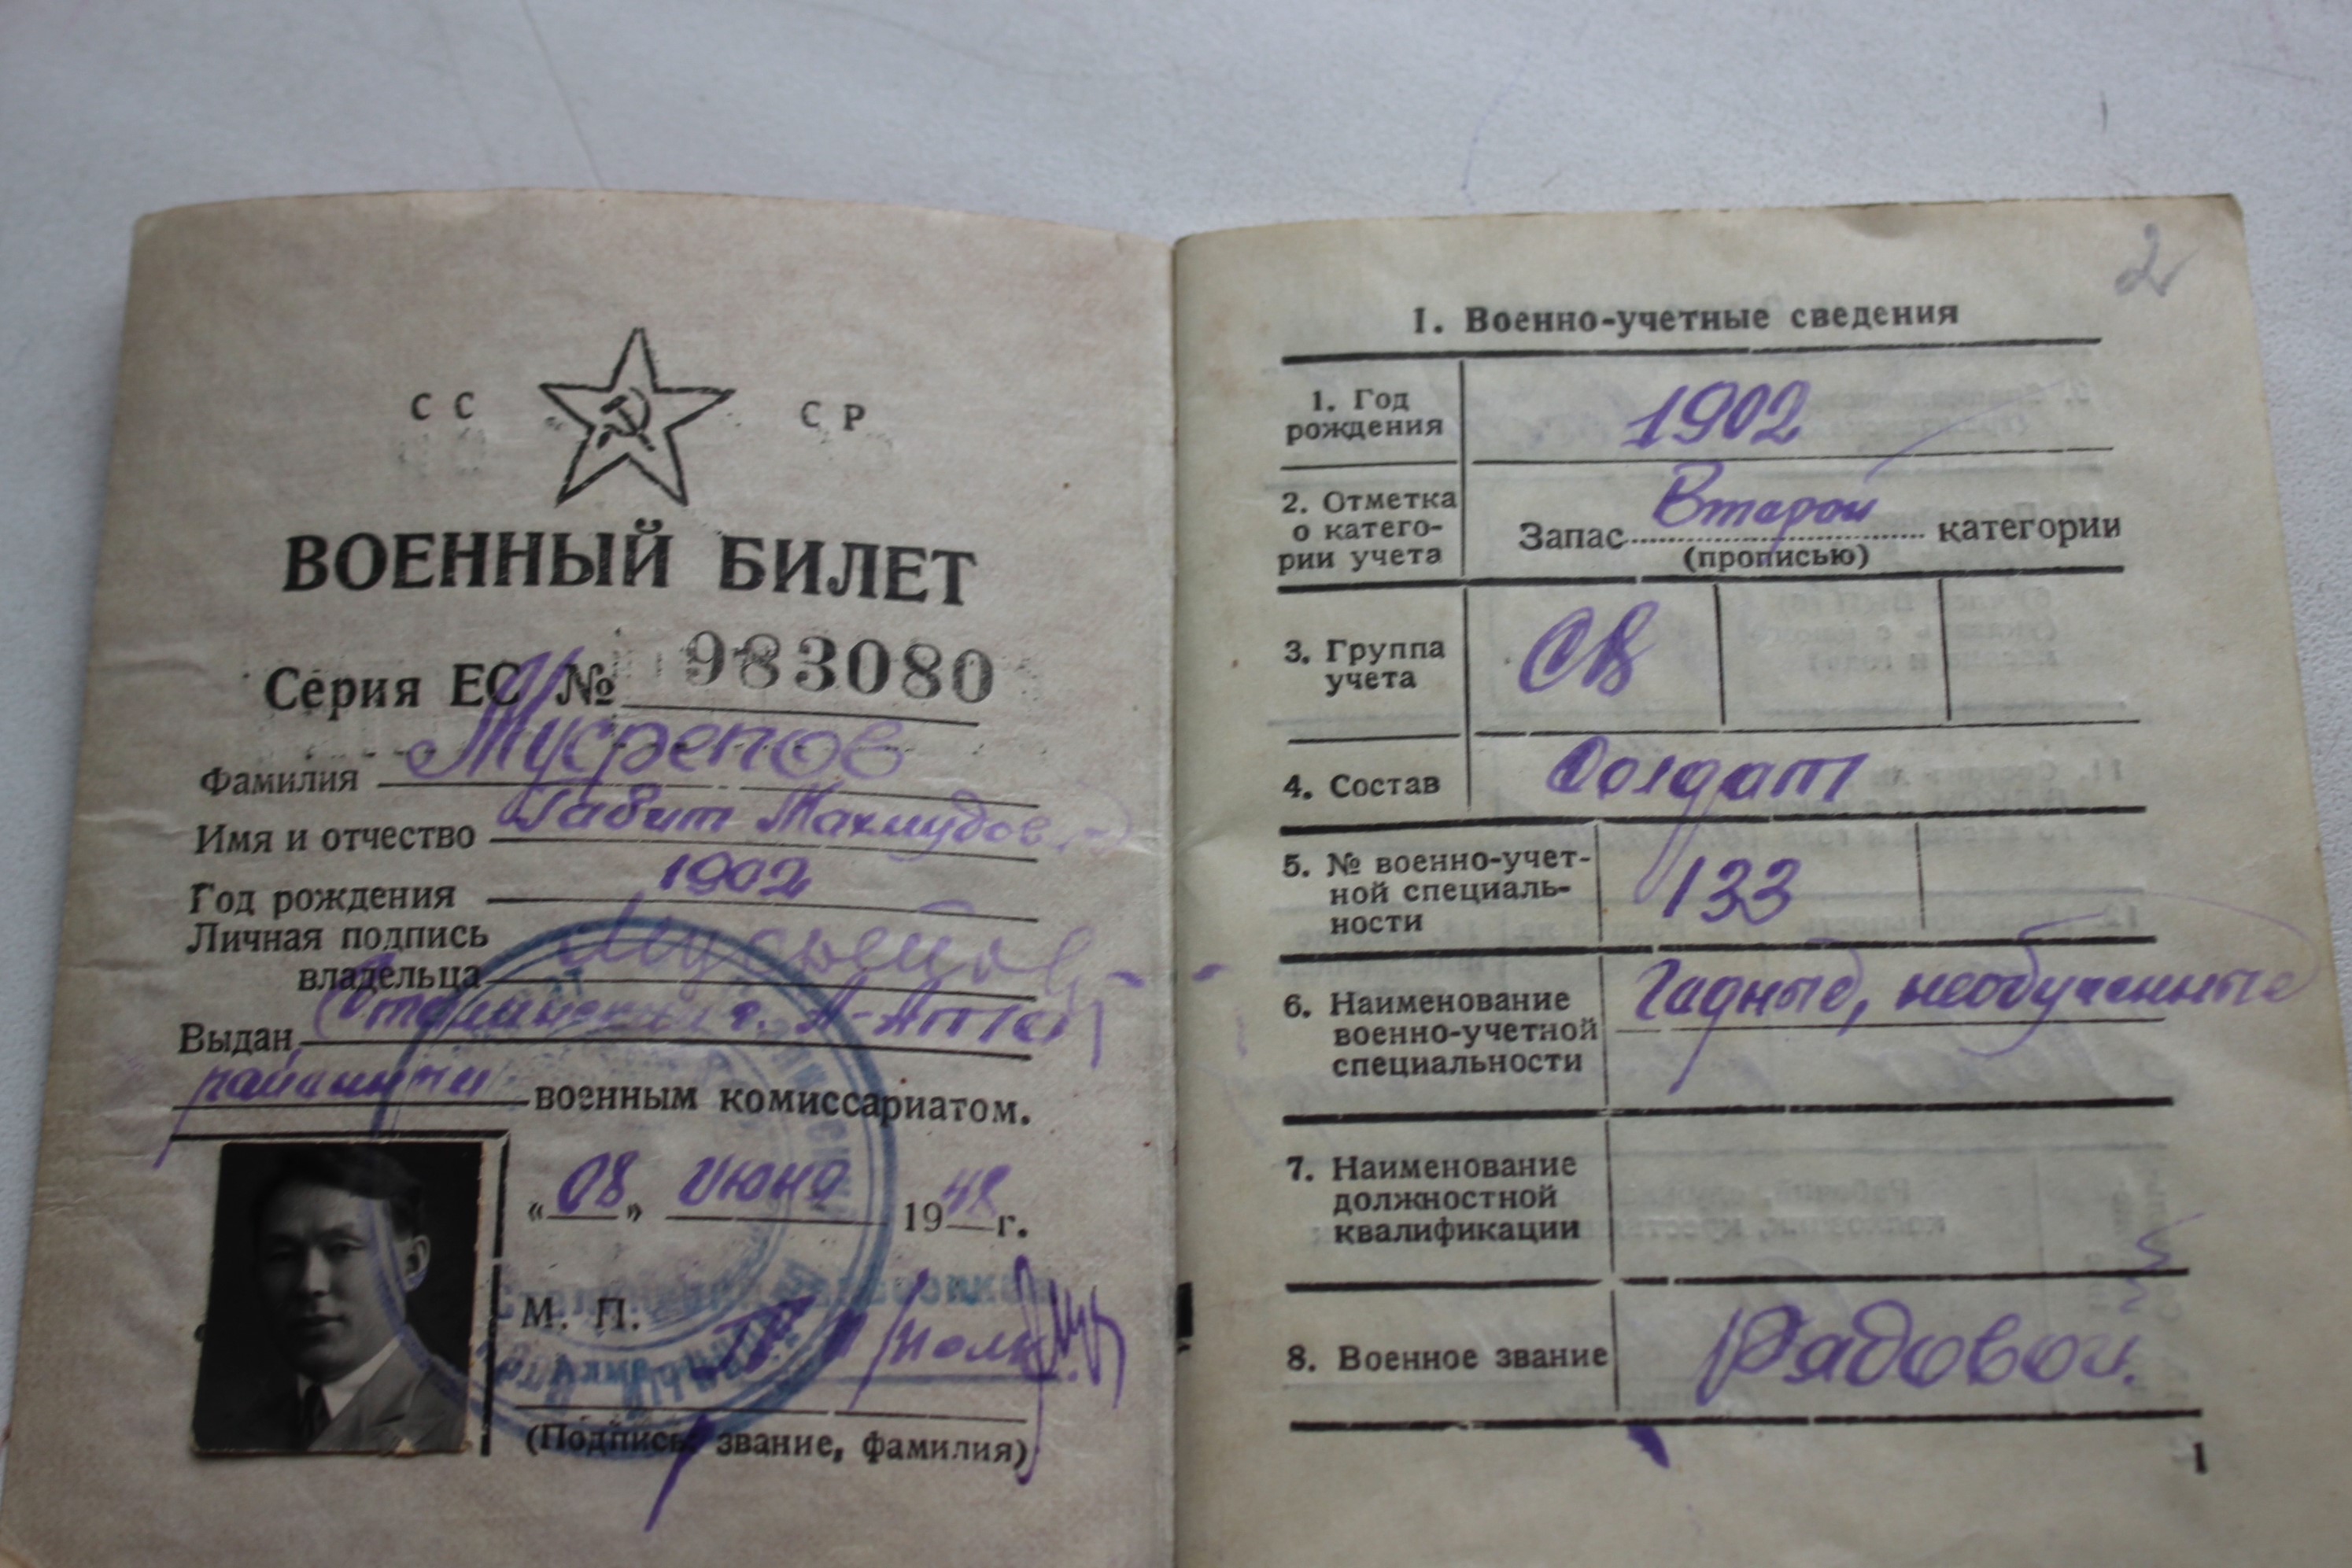 СС СР
ВОЕННЫЙ БИЛЕТ
Серия ЕС № 983080
Фамилия Мусрепов
Имя и отчество Габит Махмудов
Год рождения 1902
Личная подпись
владельца
Выдан Сталинским г. А-Аты
районным военным комиссариатом.
«08» июня 1948 г.
М. П.
(Подпись, звание, фамилия)
2
I. Военно-учетные сведения
1. Год
рождения
1902
2. Отметка
о катего-
рии учета
Запас Второй категории
(прописью)
3. Группа
учета
СВ
4. Состав
Солдат
5. № военно-учет-
ной специаль-
ности
133
6. Наименование
военно-учетной
специальности
Годные, необученные
7. Наименование
должностной
квалификации
8. Военное звание
Рядовой.
1